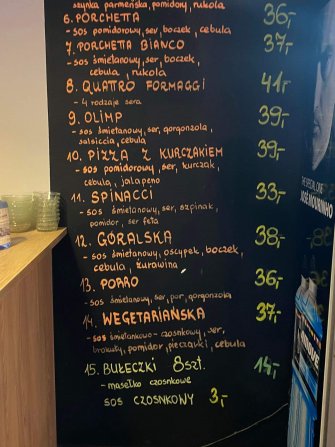 szynka parmeńska, pomidory, rukola
6. PORCHETTA 36,-
- sos pomidorowy, ser, boczek, cebula
7. PORCHETTA BIANCO 37,-
- sos śmietanowy, ser, boczek,
cebula, rukola
8. QUATTRO FORMAGGI 41,-
- 4 rodzaje sera
9. OLIMP 39,-
sos śmietanowy, ser, gorgonzola,
salsiccia, cebula
10. PIZZA Z KURCZAKIEM 39,-
- sos pomidorowy, ser, kurczak,
cebula, jalapeno
11. SPINACCI 33,-
- sos śmietanowy, ser, szpinak,
pomidor, ser feta
12. GÓRALSKA 38,-
- sos śmietanowy, oscypek, boczek,
cebula, żurawina
13. PORRO 36,-
- sos śmietanowy, ser, por, gorgonzola
14. WEGETARIAŃSKA 37,-
- sos śmietankowo-czosnkowy, ser,
brokuły, pomidor, pieczarki, cebula
15. BUŁECZKI 8szt. 14,-
- masełko czosnkowe
SOS CZOSNKOWY 3,-
THE SPECIAL ONE
JOSÉ MOURINHO